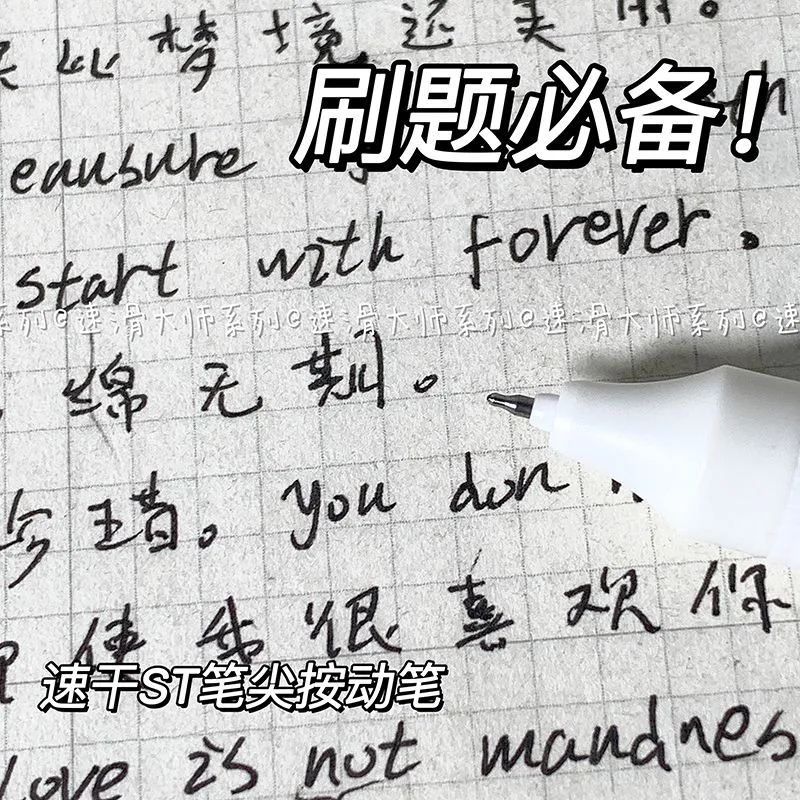 比梦境还美丽。
刷题必备!
eausure
start with forever。
系列@速滑大师系列@速滑大师系列@速滑大师系列@速
绵无期。
今王昔。you don
使我很喜欢你
速干ST笔尖按动笔
Love is not mandnes